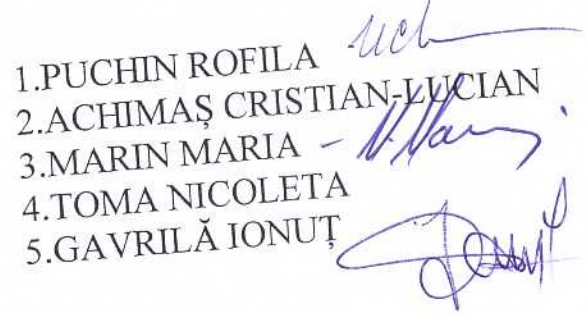 1.PUCHIN ROFILA
2.ACHIMAȘ CRISTIAN-LUCIAN
3.MARIN MARIA -
4.TOMA NICOLETA
5.GAVRILĂ IONUȚ